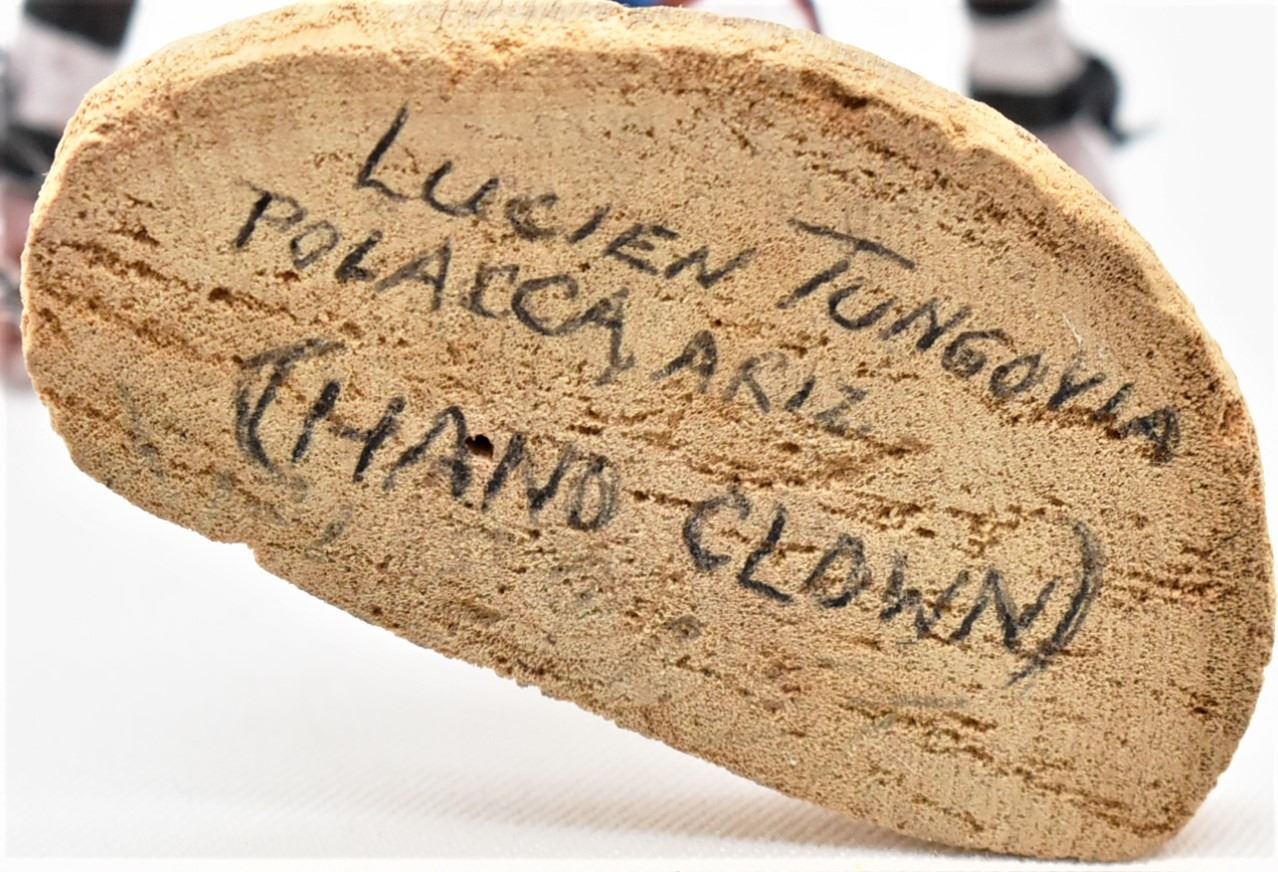 LUCIEN TUNGOYIA
POLACCA, ARIZ
(HAND CLOWN)